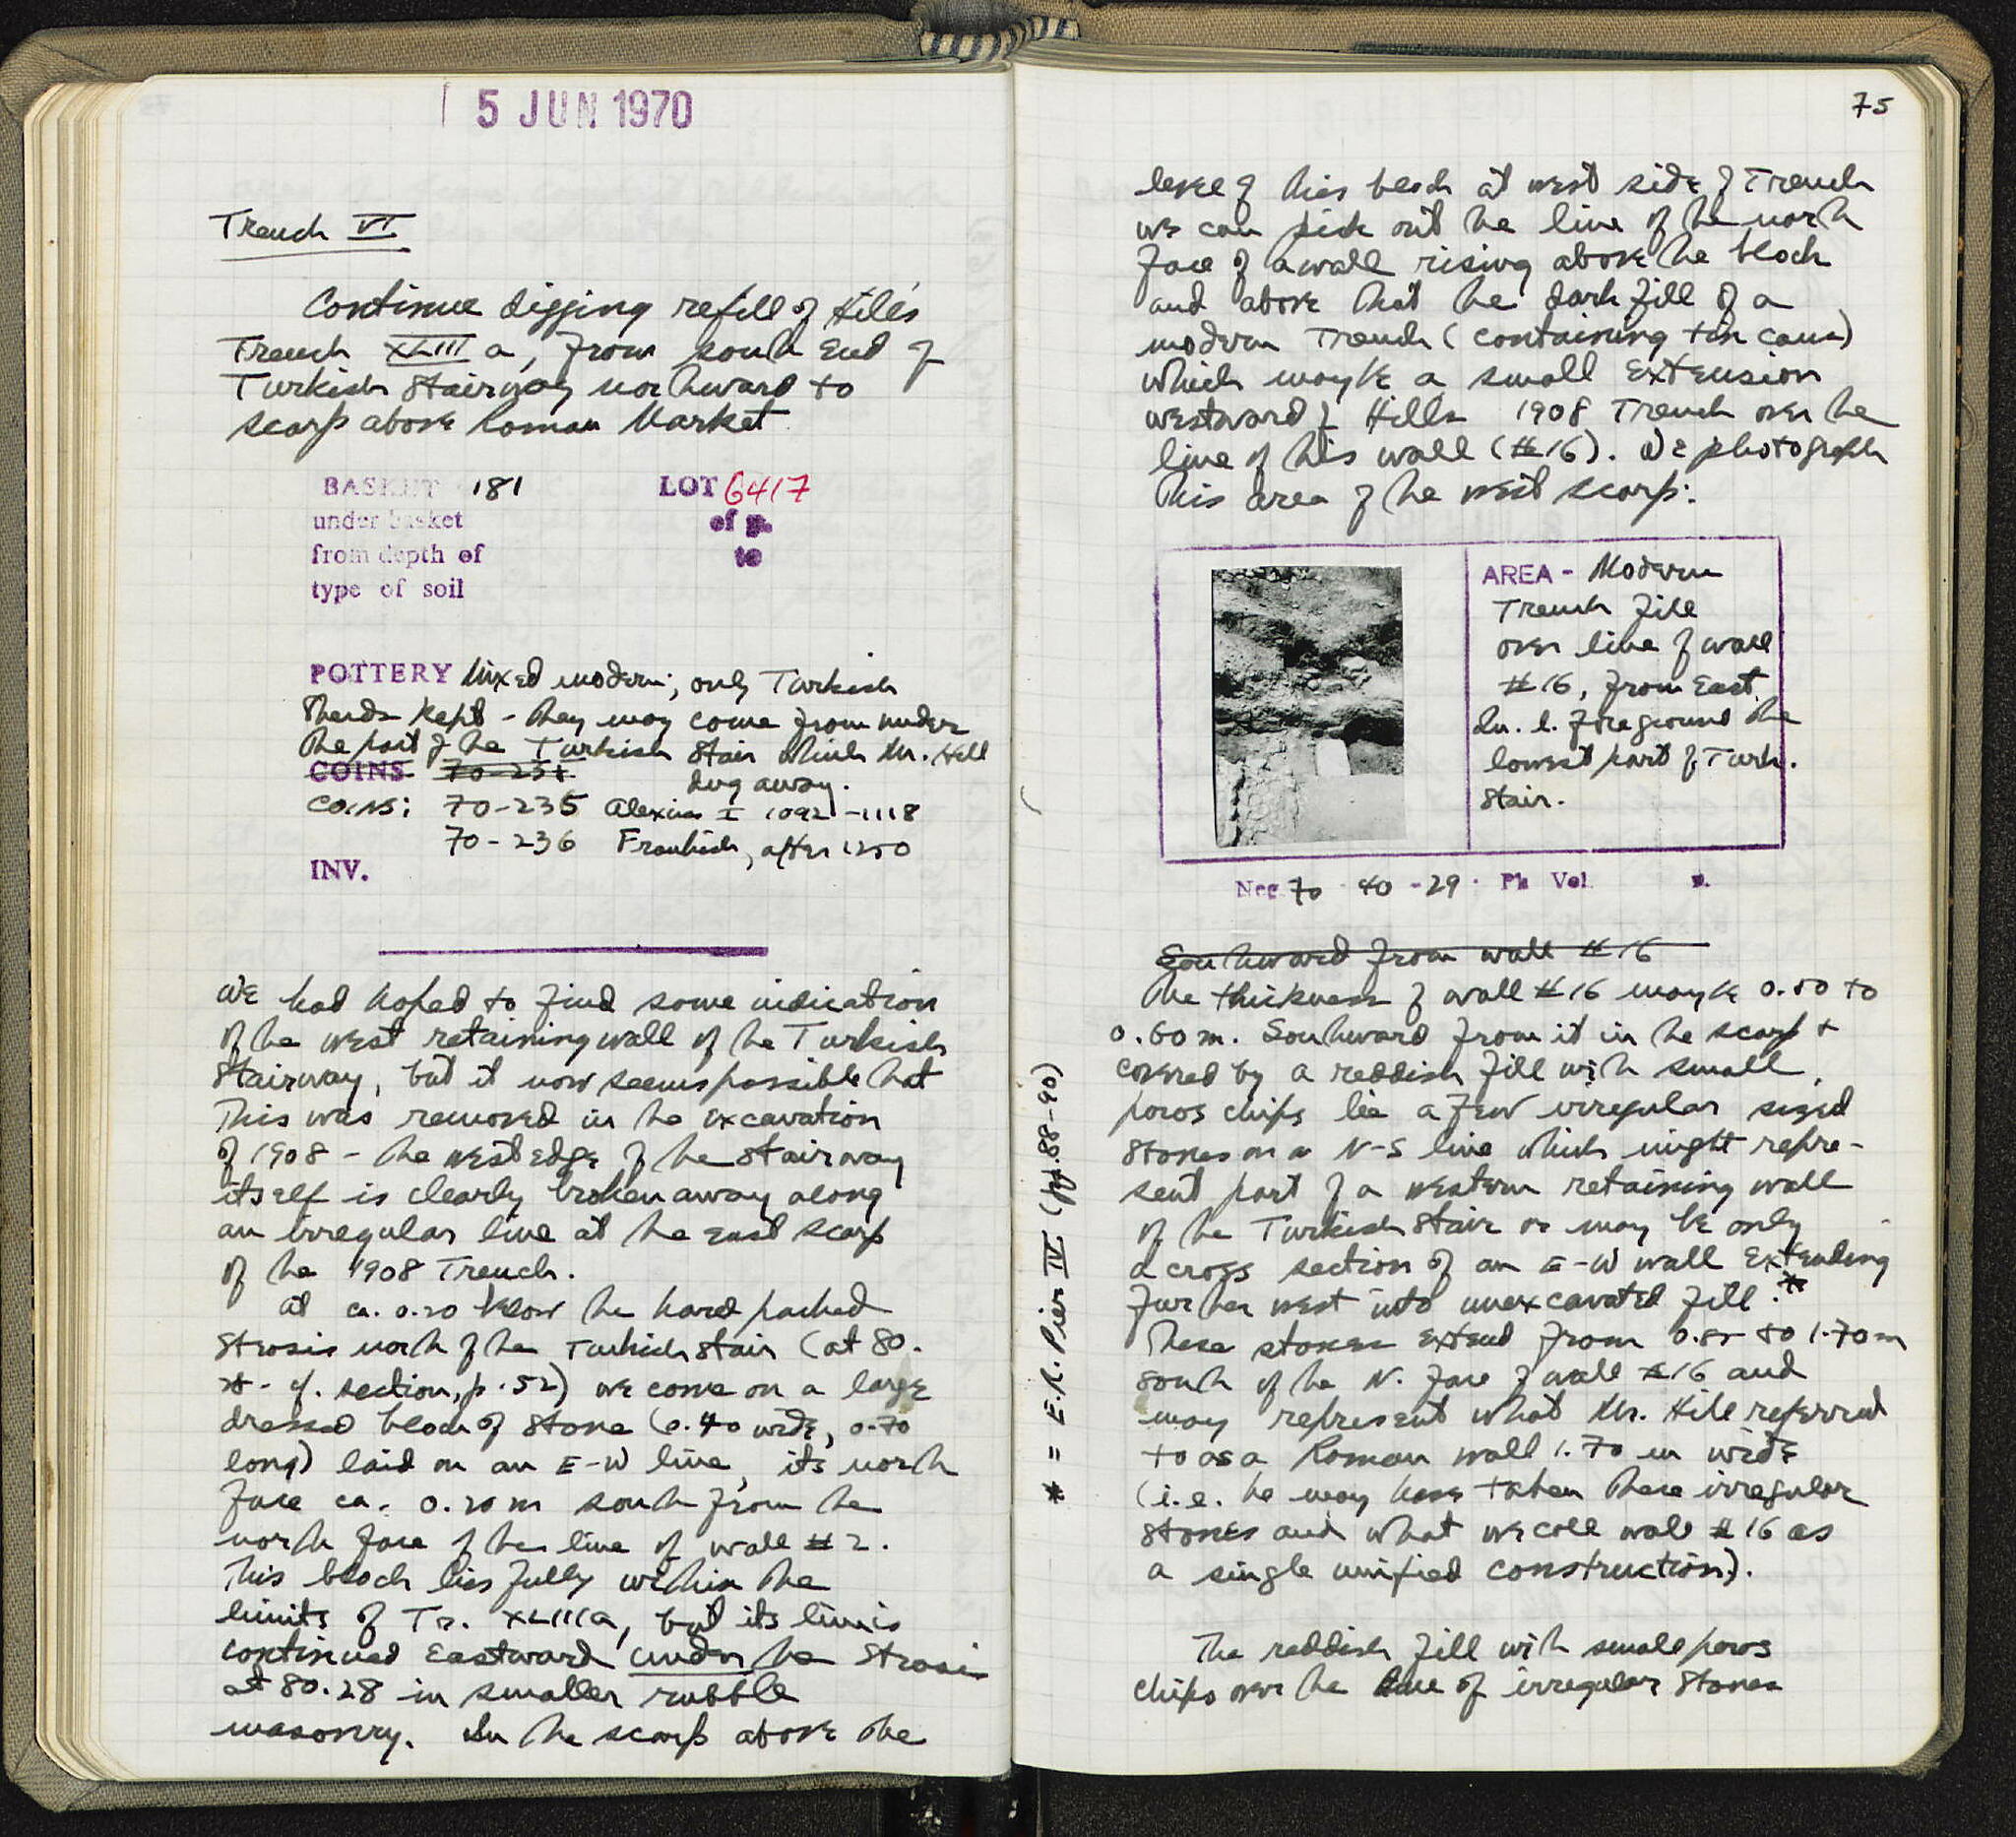 5 JUN 1970
Trench VI
Continue digging refill of Hill's
Trench XLIII a, from south end of
Turkish Stairway northward to
scarp above Roman Market
BASKET 181 LOT 6417
under basket of p.
from depth of to
type of soil
POTTERY Mixed modern; only Turkish
sherds kept - they may come from under
the part of the Turkish Stair which Mr. Hill
dug away.
COINS 70-234
Coins: 70-235 Alexius I 1092-1118
70-236 Frankish, after 1250
INV.
We had hoped to find some indication
of the west retaining wall of the Turkish
Stairway, but it now seems possible that
this was removed in the excavation
of 1908 - the west edge of the stairway
itself is clearly broken away along
an irregular line at the east scarp
of the 1908 Trench.
At ca. 0.20 below the hard packed
strosis north of the Turkish stair (at 80.
- cf. section, p. 52) we come on a large
dressed block of stone (0.40 wide, 0.70
long) laid on an E-W line, its north
face ca. 0.20 m south from the
north face of the line of wall #2.
This block lies fully within the
limits of Tr. XLIIIa, but its line is
continued eastward under the strosis
at 80.28 in smaller rubble
masonry. In the scarp above the
75
level of this block at west side of Trench
we can pick out the line of the north
face of a wall rising above the block
and above that the dark fill of a
modern Trench (containing tin cans)
which may be a small extension
westward of Hill's 1908 Trench over the
line of this wall (#16). We photograph
this area of the west scarp:
AREA - Modern
Trench fill
over line of wall
#16, from East.
In l. foreground the
lowest part of Turk.
Stair.
Neg. 70 - 40 - 29. Ph Vol p.
Southward from wall #16
The thickness of wall #16 may be 0.50 to
0.60 m. Southward from it in the scarp +
covered by a reddish fill with small
poros chips lie a few irregular sized
stones on a N-S line which might repre-
sent part of a western retaining wall
of the Turkish Stair or may be only
a cross section of an E-W wall extending
further west into unexcavated fill.*
These stones extend from 0.85 to 1.70 m
south of the N. face of wall #16 and
may represent what Mr. Hill referred
to as a Roman wall 1.70 m wide
(i.e. he may have taken these irregular
stones and what we call wall #16 as
a single unified construction).
The reddish fill with small poros
chips over the line of irregular stones
* = E.R. Pier IV (pp. 88-90)